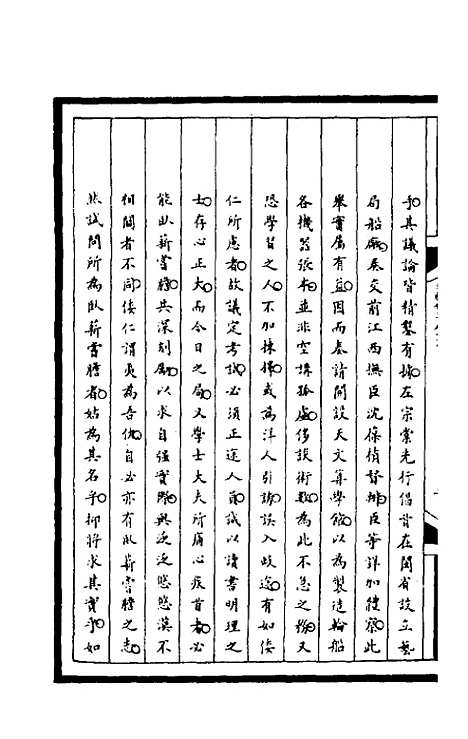 乎其議論皆精鑿有據左宗棠先行倡首在閩省設立藝
局船廠奏交前江西撫臣沈葆楨督辦臣等詳加體察此
舉實屬有益因而奏請開設天文算學館以為製造輪船
各機器張本並非空講孤虛侈談術數為此不急之務又
恐學習之人不加揀擇或為洋人引誘誤入歧途有如倭
仁所慮者故議定考試必須正途人員誠以讀書明理之
士存心正大而今日之局又學士大夫所痛心疾首者必
能臥薪嘗膽共深刻厲以求自強實際與泛泛悠悠漠不
相關者不同倭仁謂夷為吾仇自必亦有臥薪嘗膽之志
然試問所為臥薪嘗膽者姑為其名乎抑將求其實乎如